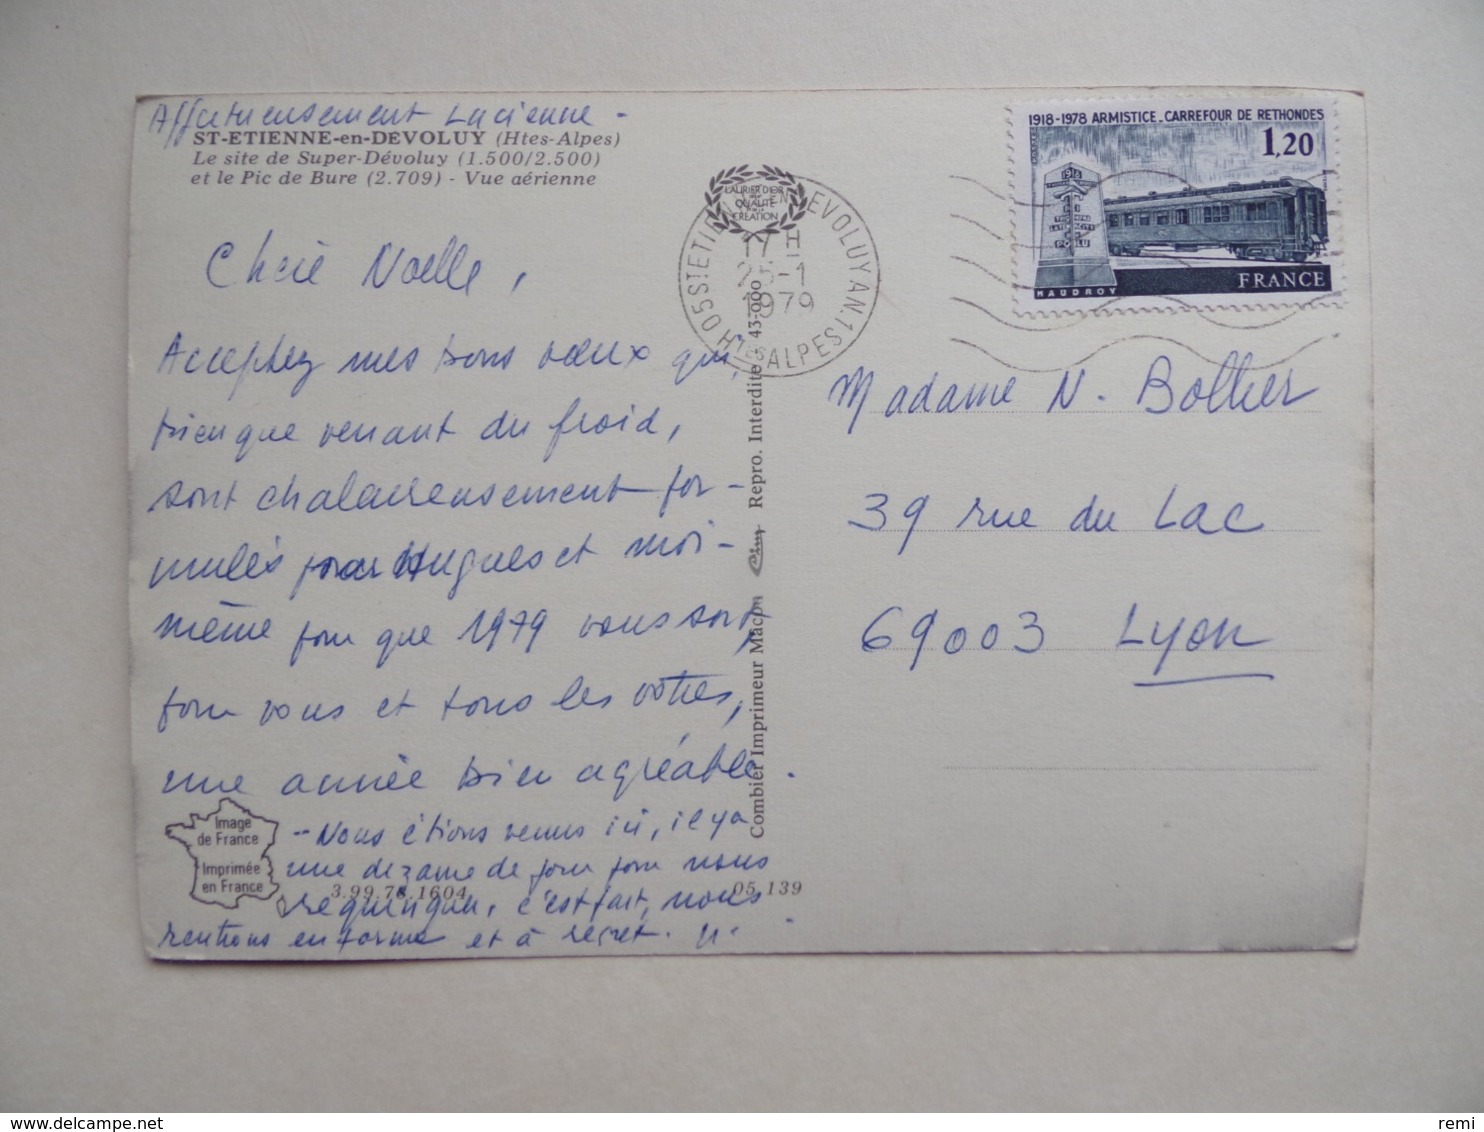 Affectueusement Lucienne -
ST-ETIENNE-en-DEVOLUY (Htes-Alpes)
Le site de Super-Dévoluy (1.500/2.500)
et le Pic de Bure (2.709) - Vue aérienne
Chère Noelle,
Acceptez mes bons vœux qui,
bien que venant du froid,
sont chaleureusement for-
mulés par Hugues et moi-
même pour que 1979 vous soit,
pour vous et tous les vôtres,
une année bien agréable.
-- Nous étions venus ici, il y a
une dizaine de jours pour nous
requinquer, c'est fait, nous
rentrons en forme et à regret.
Image
de France
Imprimée
en France
3.99.78.1604
05.139
Combier Imprimeur Macon Cim Repro. Interdite 43.000
LAURIER D'OR
QUALITÉ
CRÉATION
05 ST ETIENNE EN DEVOLUY AN.1 Htes ALPES
17 H
25-1
1979
1918-1978 ARMISTICE_CARREFOUR DE RETHONDES
1,20
1918
POILU
HAUDROY
FRANCE
Madame N. Bollier
39 rue du Lac
69003 Lyon
remi